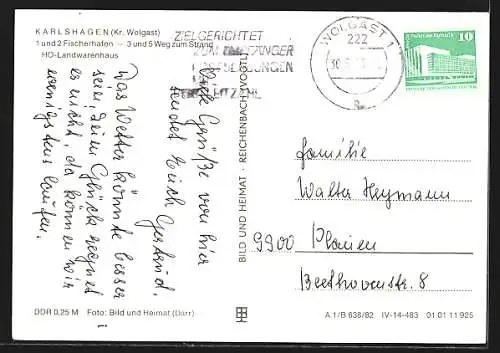 KARLSHAGEN (Kr. Wolgast)
1 und 2 Fischerhafen — 3 und 5 Weg zum Strand
HO-Landwarenhaus
ZIELGERICHTET
ZUM EMPFÄNGER
POSTLEITZAHL
WOLGAST 1
222
10
Viele Grüße von hier
sendet Euch Gertrud.
Das Wetter könnte besser
sein. Dem Glück regnet
es nicht, da können wir
wenigstens laufen.
BILD UND HEIMAT · REICHENBACH (VOGTL)
Familie
Walter Heymann
9900 Plauen
Beethovenstr. 8
DDR 0,25 M Foto: Bild und Heimat (Darr)
A 1/B 638/82 IV-14-483 01 01 11 925